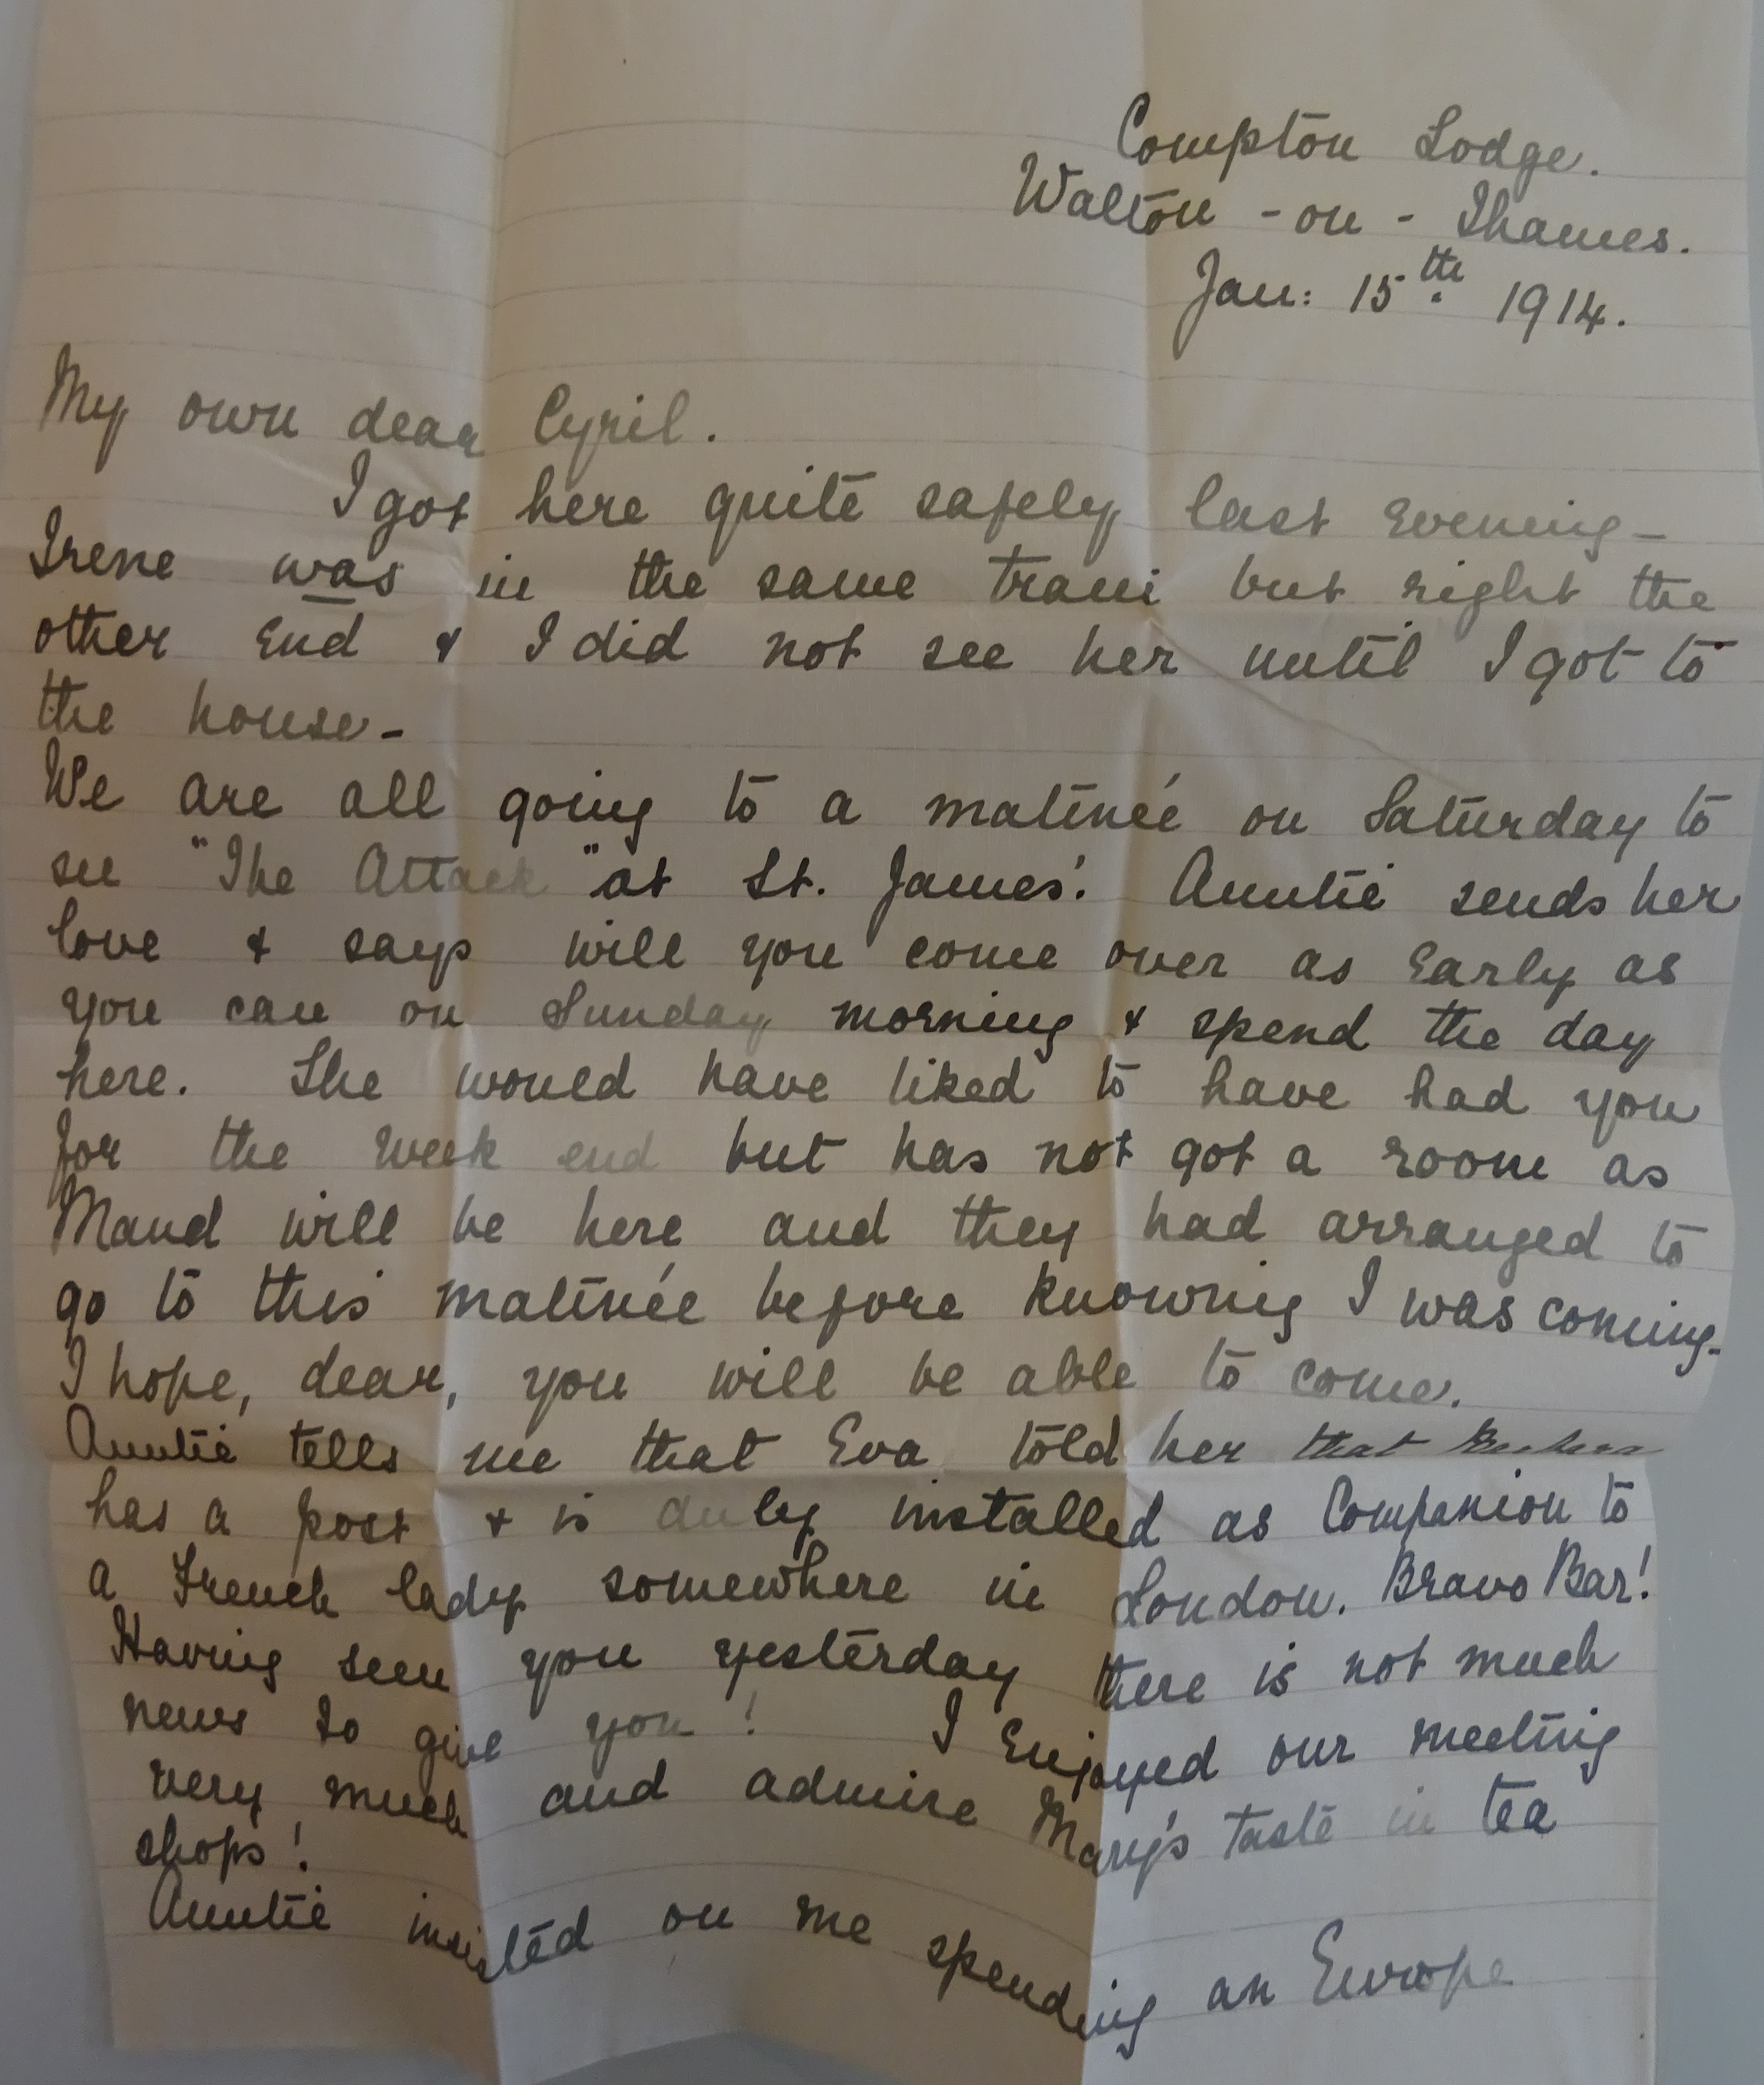 Compton Lodge.
Walton - on - Thames.
Jan: 15th 1914.
My own dear Cyril.
I got here quite safely last Evening -
Irene was in the same train but right the
other End & I did not see her until I got to
the house -
We are all going to a matinée on Saturday to
see "The Attack" at St. James'. Auntie sends her
love & says will you come over as Early as
you can on Sunday morning & spend the day
here. She would have liked to have had you
for the week end but has not got a room as
Maud will be here and they had arranged to
go to this matinée before knowing I was coming.
I hope, dear, you will be able to come.
Auntie tells me that Eva told her that
has a post & is duly installed as Companion to
a French lady somewhere in London. Bravo Bar!
Having seen you yesterday there is not much
news to give you! I Enjoyed our meeting
very much and admire Mary's taste in tea
shops!
Auntie insisted on me spending an Europe